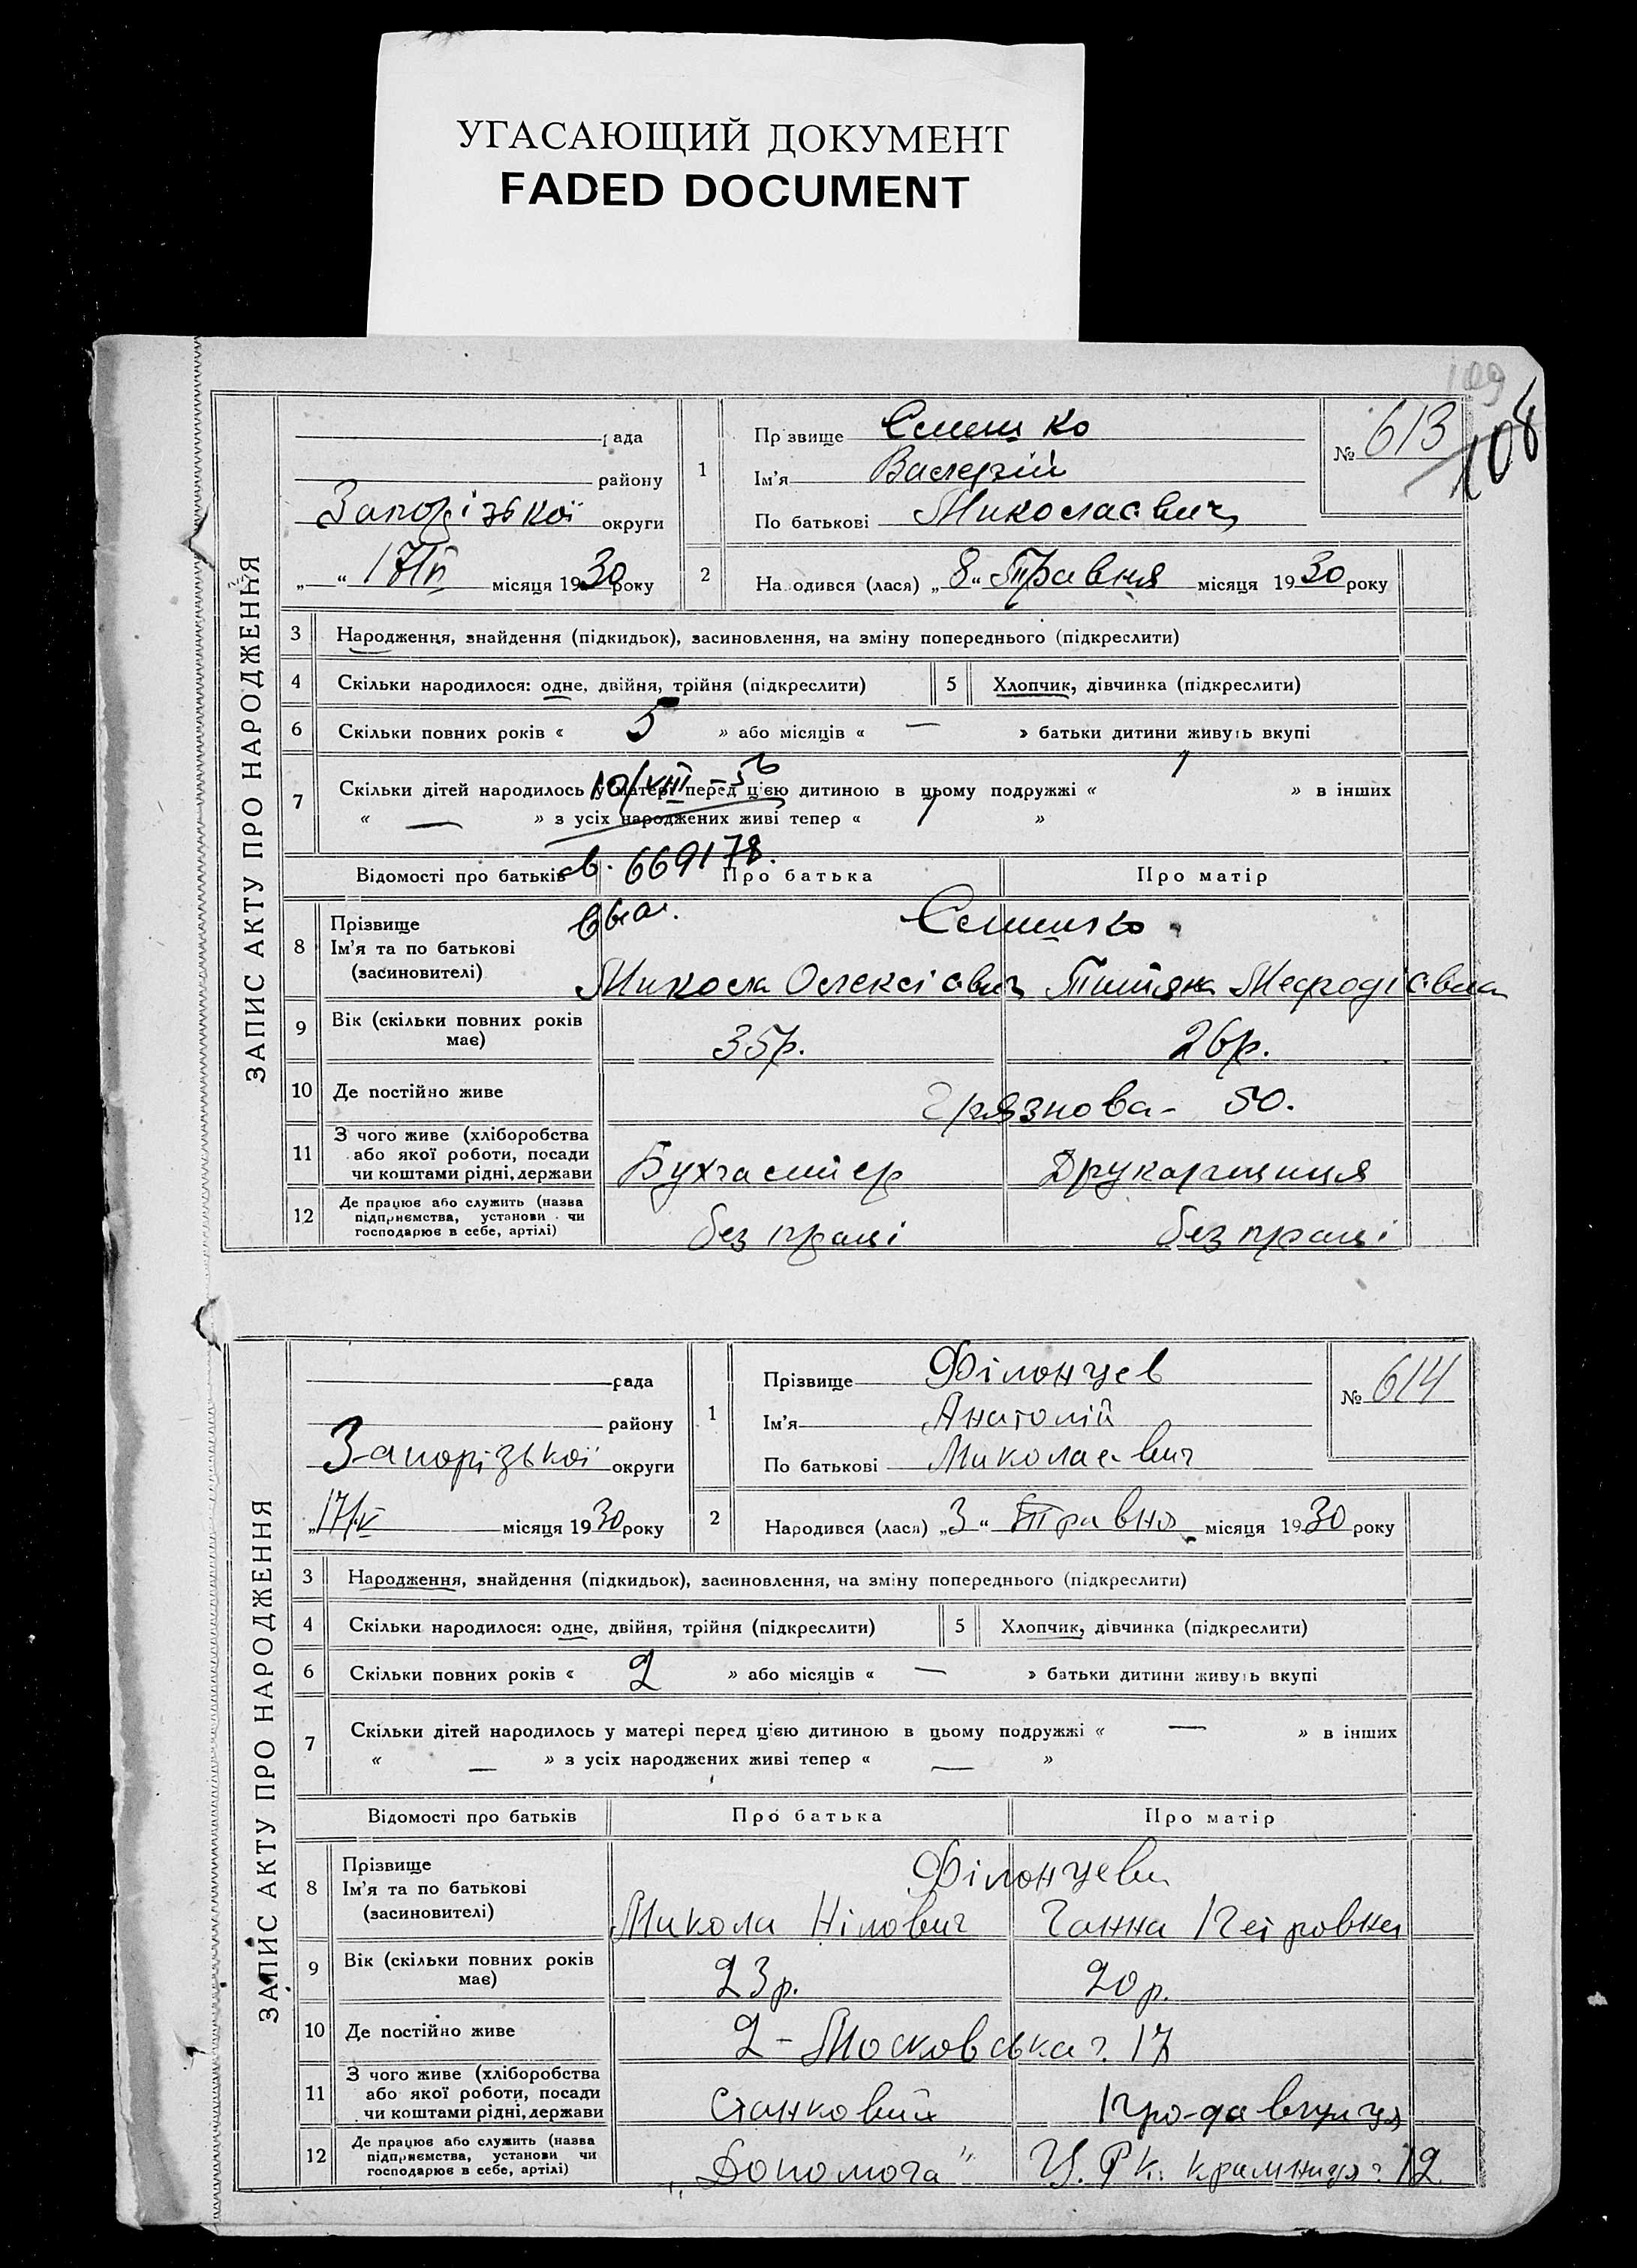 УГАСАЮЩИЙ ДОКУМЕНТ
FADED DOCUMENT
109
108
ЗАПИС АКТУ ПРО НАРОДЖЕННЯ
рада
району
Запорізької округи
„ “ 17/V місяця 1930 року
1
Прізвище Семешко
Ім'я Валерій
По батькові Миколаєвич
№ 613
2 Народився (лася) „8“ Травня місяця 1930 року
3 Народження, знайдення (підкидьок), засиновлення, на зміну попереднього (підкреслити)
4 Скільки народилося: одне, двійня, трійня (підкреслити) 5 Хлопчик, дівчинка (підкреслити)
6 Скільки повних років « 5 » або місяців « — » батьки дитини живуть вкупі
7 Скільки дітей народилось у матері перед цією дитиною в цьому подружжі « 1 » в інших
« — » з усіх народжених живі тепер « 1 »
10/VIII – 56
св. 669178.
выд.
Відомості про батьків Про батька Про матір
8 Прізвище
Ім'я та по батькові
(засиновителі)
Семешко
Микола Олексієвич Тетяна Мефодієвна
9 Вік (скільки повних років має) 35р. 26р.
10 Де постійно живе Грязнова - 50.
11 З чого живе (хліборобства
або якої роботи, посади
чи коштами рідні, держави
Бухгалтер Друкарщиця
12 Де працює або служить (назва
підприємства, установи чи
господарює в себе, артілі)
без праці без праці
ЗАПИС АКТУ ПРО НАРОДЖЕННЯ
рада
району
Запорізької округи
„17/V місяця 1930 року
1
Прізвище Філонцев
Ім'я Анатолій
По батькові Миколаєвич
№ 614
2 Народився (лася) „3“ Травня місяця 1930 року
3 Народження, знайдення (підкидьок), засиновлення, на зміну попереднього (підкреслити)
4 Скільки народилося: одне, двійня, трійня (підкреслити) 5 Хлопчик, дівчинка (підкреслити)
6 Скільки повних років « 2 » або місяців « — » батьки дитини живуть вкупі
7 Скільки дітей народилось у матері перед цією дитиною в цьому подружжі « — » в інших
« — » з усіх народжених живі тепер « — »
Відомості про батьків Про батька Про матір
8 Прізвище
Ім'я та по батькові
(засиновителі)
Філонцеви
Микола Нілович Ганна Петровна
9 Вік (скільки повних років має) 23р. 20р.
10 Де постійно живе 2 - Московська ч. 17
11 З чого живе (хліборобства
або якої роботи, посади
чи коштами рідні, держави
Станковий Продавчиця
12 Де працює або служить (назва
підприємства, установи чи
господарює в себе, артілі)
„Допомога“ Ц. Р. К. крамниця ч. 12